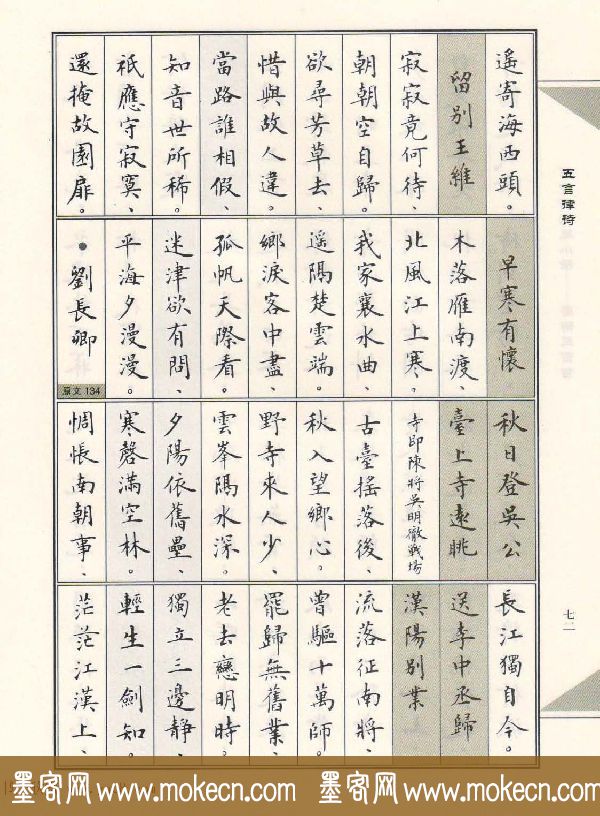 五言律詩
遙寄海西頭。
留別王維
寂寂竟何待、
朝朝空自歸。
欲尋芳草去、
惜與故人違。
當路誰相假、
知音世所稀。
祇應守寂寞、
還掩故園扉。
早寒有懷
木落雁南渡、
北風江上寒、
我家襄水曲、
遥隔楚雲端。
鄉淚客中盡、
孤帆天際看。
迷津欲有問、
平海夕漫漫。
●劉長卿
原文 134
秋日登吳公
臺上寺遠眺
寺即陳將吳明徹戰場
古臺搖落後、
秋入望鄉心。
野寺來人少、
雲峯隔水深。
夕陽依舊壘、
寒磬滿空林。
惆悵南朝事、
長江獨自今。
送李中丞歸
漢陽別業
流落征南將、
曾驅十萬師。
罷歸無舊業、
老去戀明時。
獨立三邊靜、
輕生一劍知。
茫茫江漢上、
七二
墨客网 www.mokecn.com 墨客网 www.mokecn.com